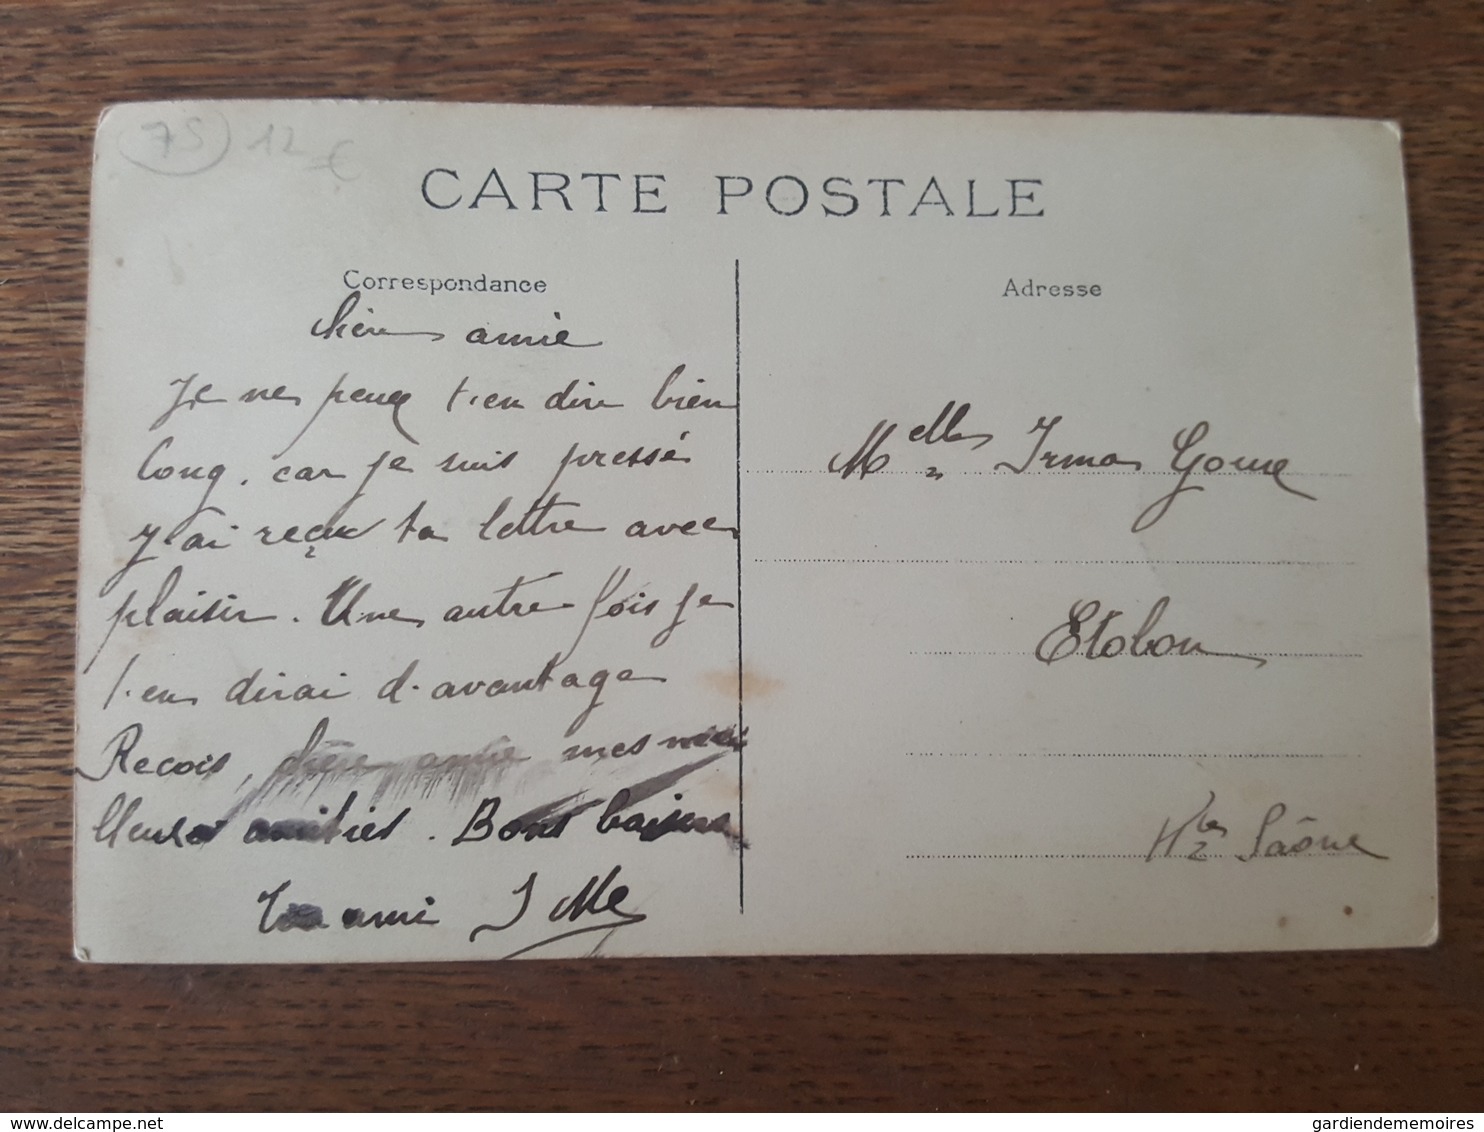 75 12 €
CARTE POSTALE
Correspondance
chère amie
Je ne peux t'en dire bien
long, car je suis pressé
J'ai reçu ta lettre avec
plaisir. Une autre fois je
t'en dirai d'avantage
Recois, chère amie mes meil
lleures amitiés. Bons baisers
Ton ami
Adresse
Melle Irma Goux
Etobon
Hte Saône
delcampe.net
gardiendememoires